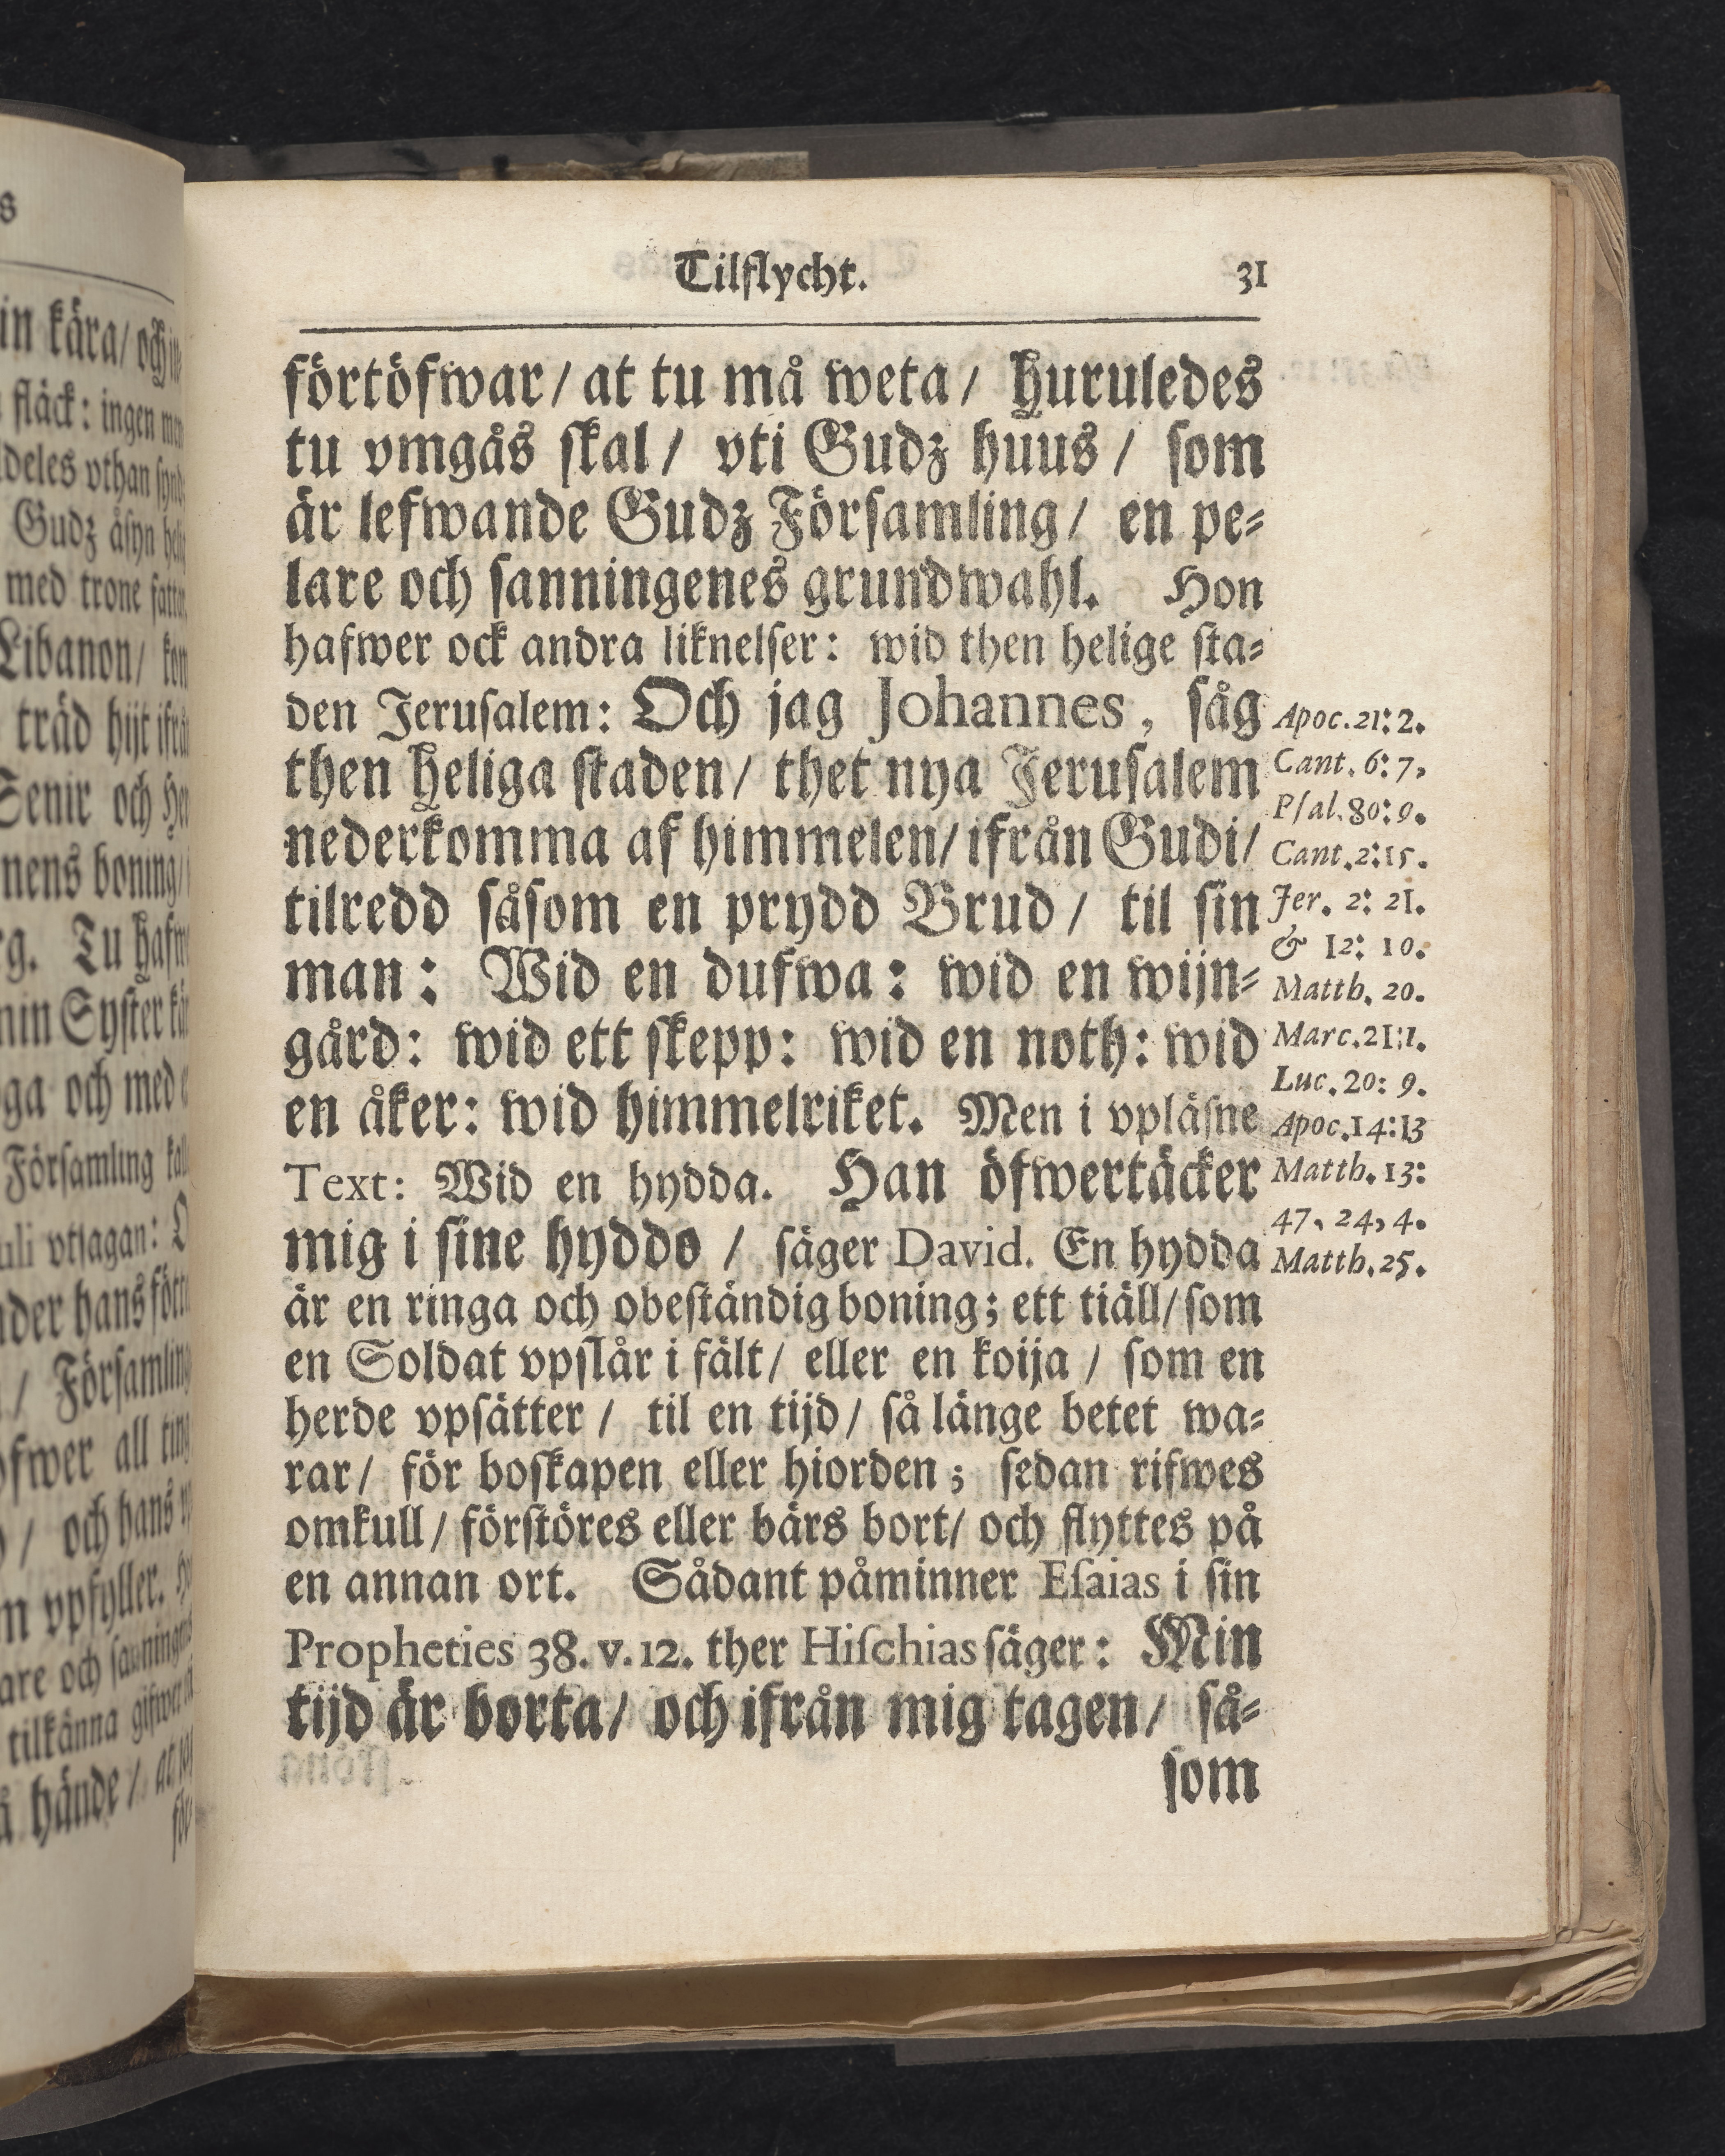 Tilflycht. 31
förtöfwar/ at tu må weta/ huruledes
tu vmgås skal/ vti Gudz huus/ som
är lefwande Gudz Församling/ en pe-
lare och sanningenes grundwahl. Hon
hafwer ock andra liknelser: wid then helige sta-
den Jerusalem: Och jag Johannes, såg
then heliga staden/ thet nya Jerusalem
nederkomma af himmelen/ ifrån Gudi/
tilredd såsom en prydd Brud/ til sin
man: Wid en dufwa: wid en wijn-
gård: wid ett skepp: wid en noth: wid
en åker: wid himmelriket. Men i vpläsne
Text: Wid en hydda. Han öfwertäcker
mig i sine hyddo / säger David. En hydda
är en ringa och obeständig boning; ett tiäll/ som
en Soldat vpslår i fält/ eller en koija / som en
herde vpsätter / til en tijd/ så länge betet wa-
rar/ för boskapen eller hiorden; sedan rifwes
omkull/ förstöres eller bärs bort/ och flyttes på
en annan ort. Sådant påminner Esaias i sin
Propheties 38. v. 12. ther Hischias säger: Min
tijd är borta/ och ifrån mig tagen/ så-
som
Apoc. 21: 2.
Cant. 6: 7,
Psal. 80: 9.
Cant. 2: 15.
Jer. 2: 21.
& 12: 10.
Matth. 20.
Marc. 21: 1.
Luc. 20: 9.
Apoc. 14: 13
Matth. 13:
47, 24, 4.
Matth. 25.
in kära/ och
fläck: ingen
vthan
Gudz åsyn
med trone
Libanon/
träd hijt
Senir och
boning/
Tu
Syster
och med
Församling
vtsagan:
hans
Församling
all
/ och hans
vpfyller.
och
tilkänna gifwer
hände/ at